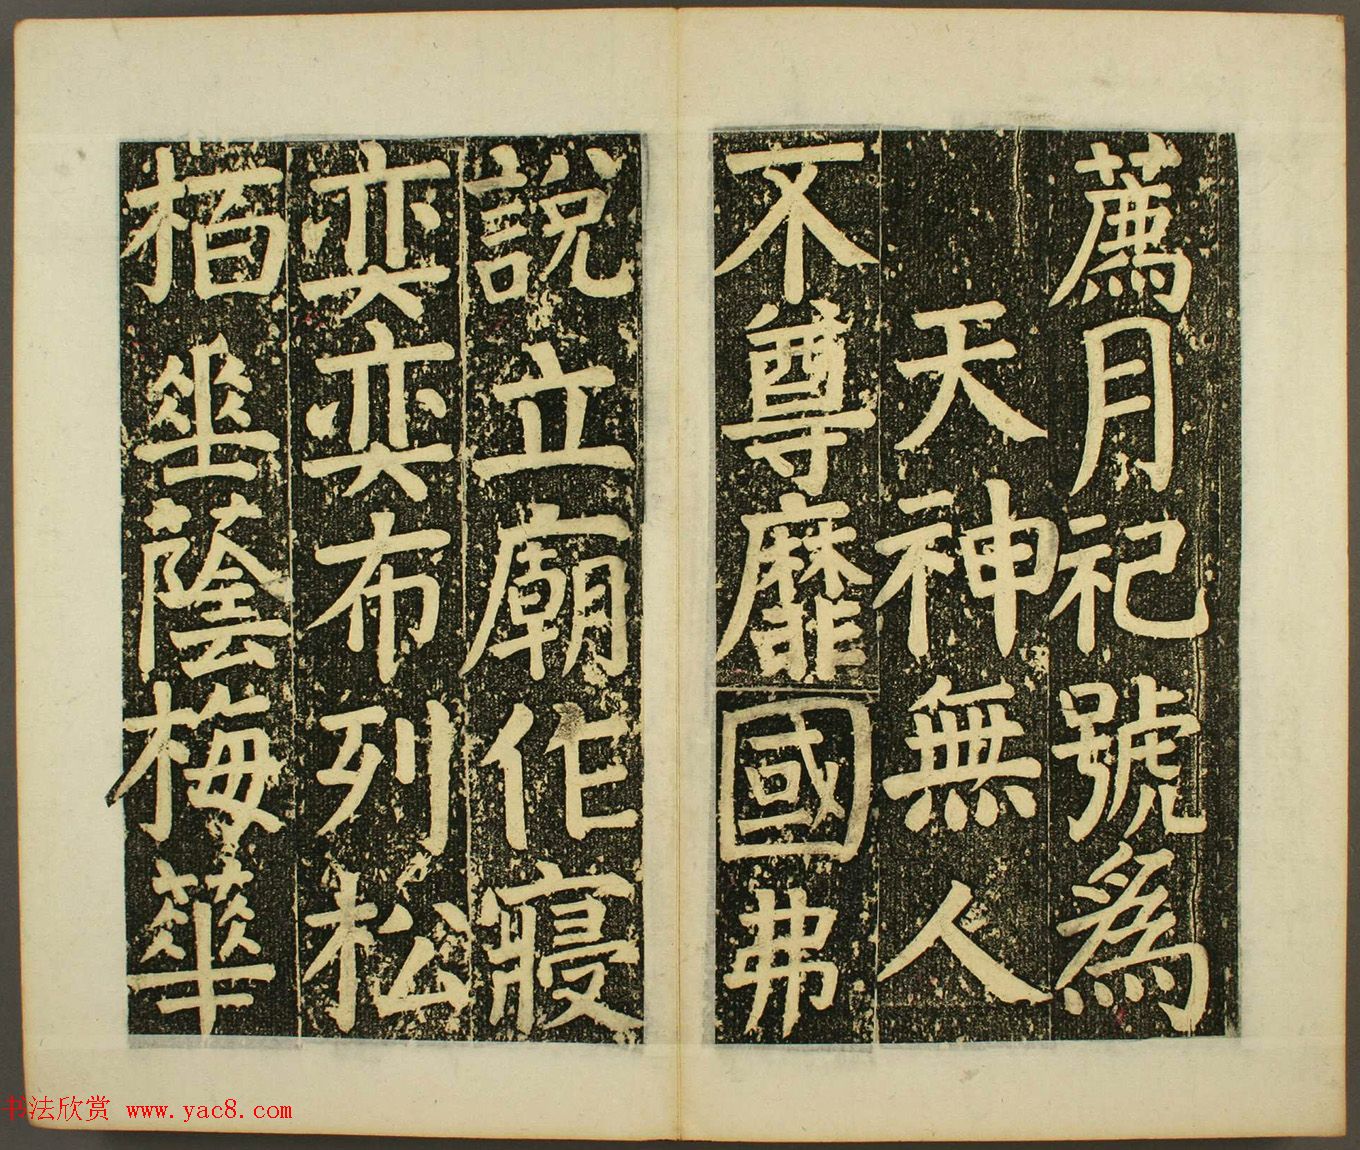 薦月祀號爲
天神無人
不尊靡國弗
說立廟作寢
奕奕布列松
栢垂蔭梅華
书法欣赏 www.yac8.com